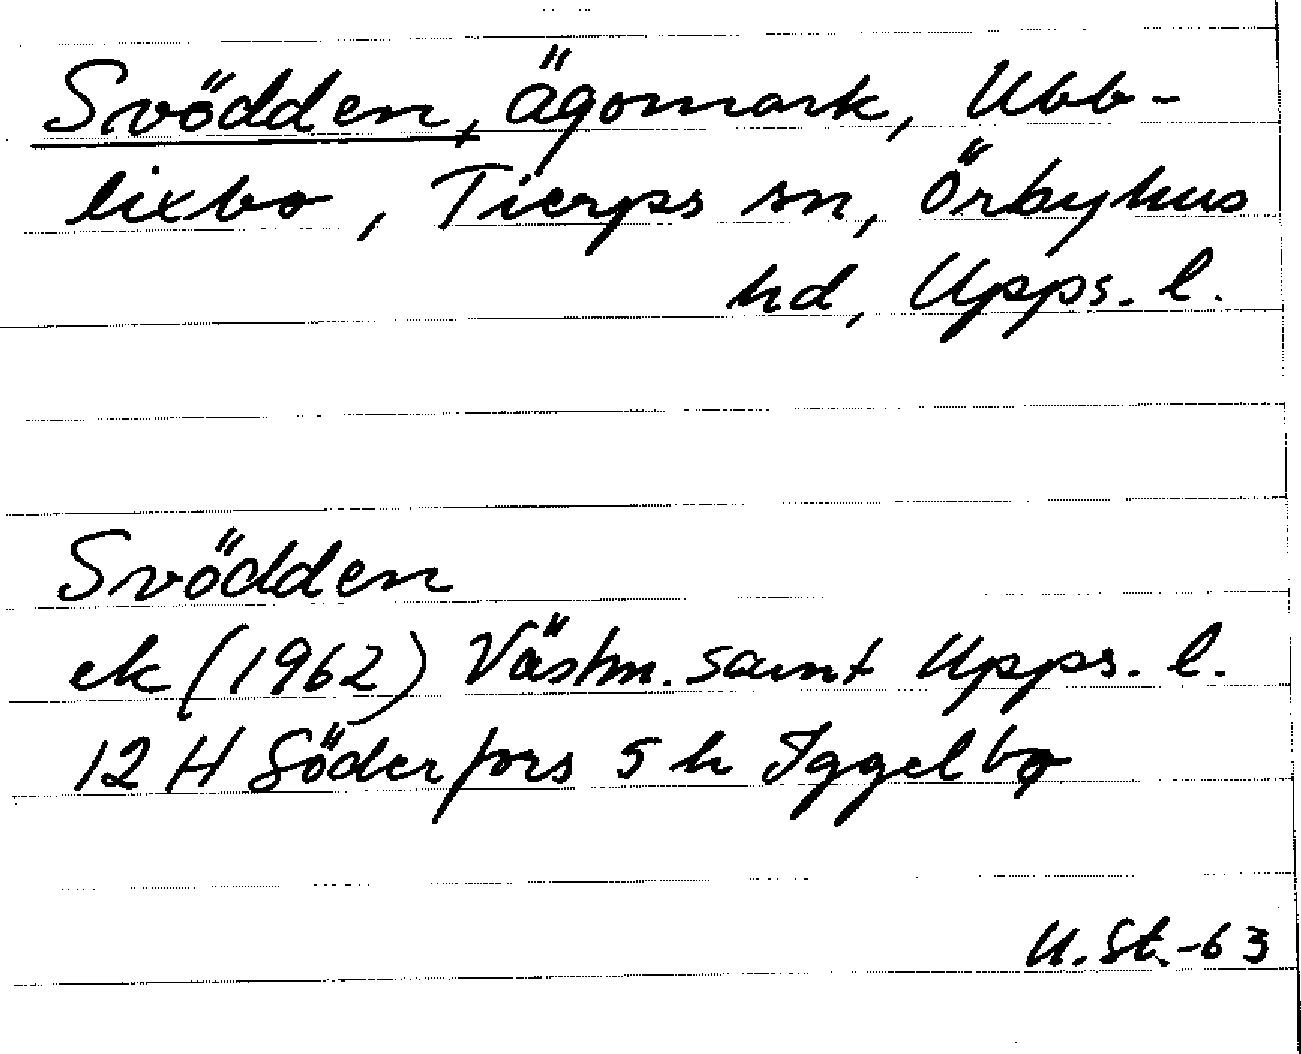 Svödden, ägomark, Ubb-
lixbo, Tierps sn, Örbyhus
hd, Upps. l.
Svödden
ek (1962) Västm. samt Upps. l.
12 H Söderfors 5 h Iggelbo
U. St. -63